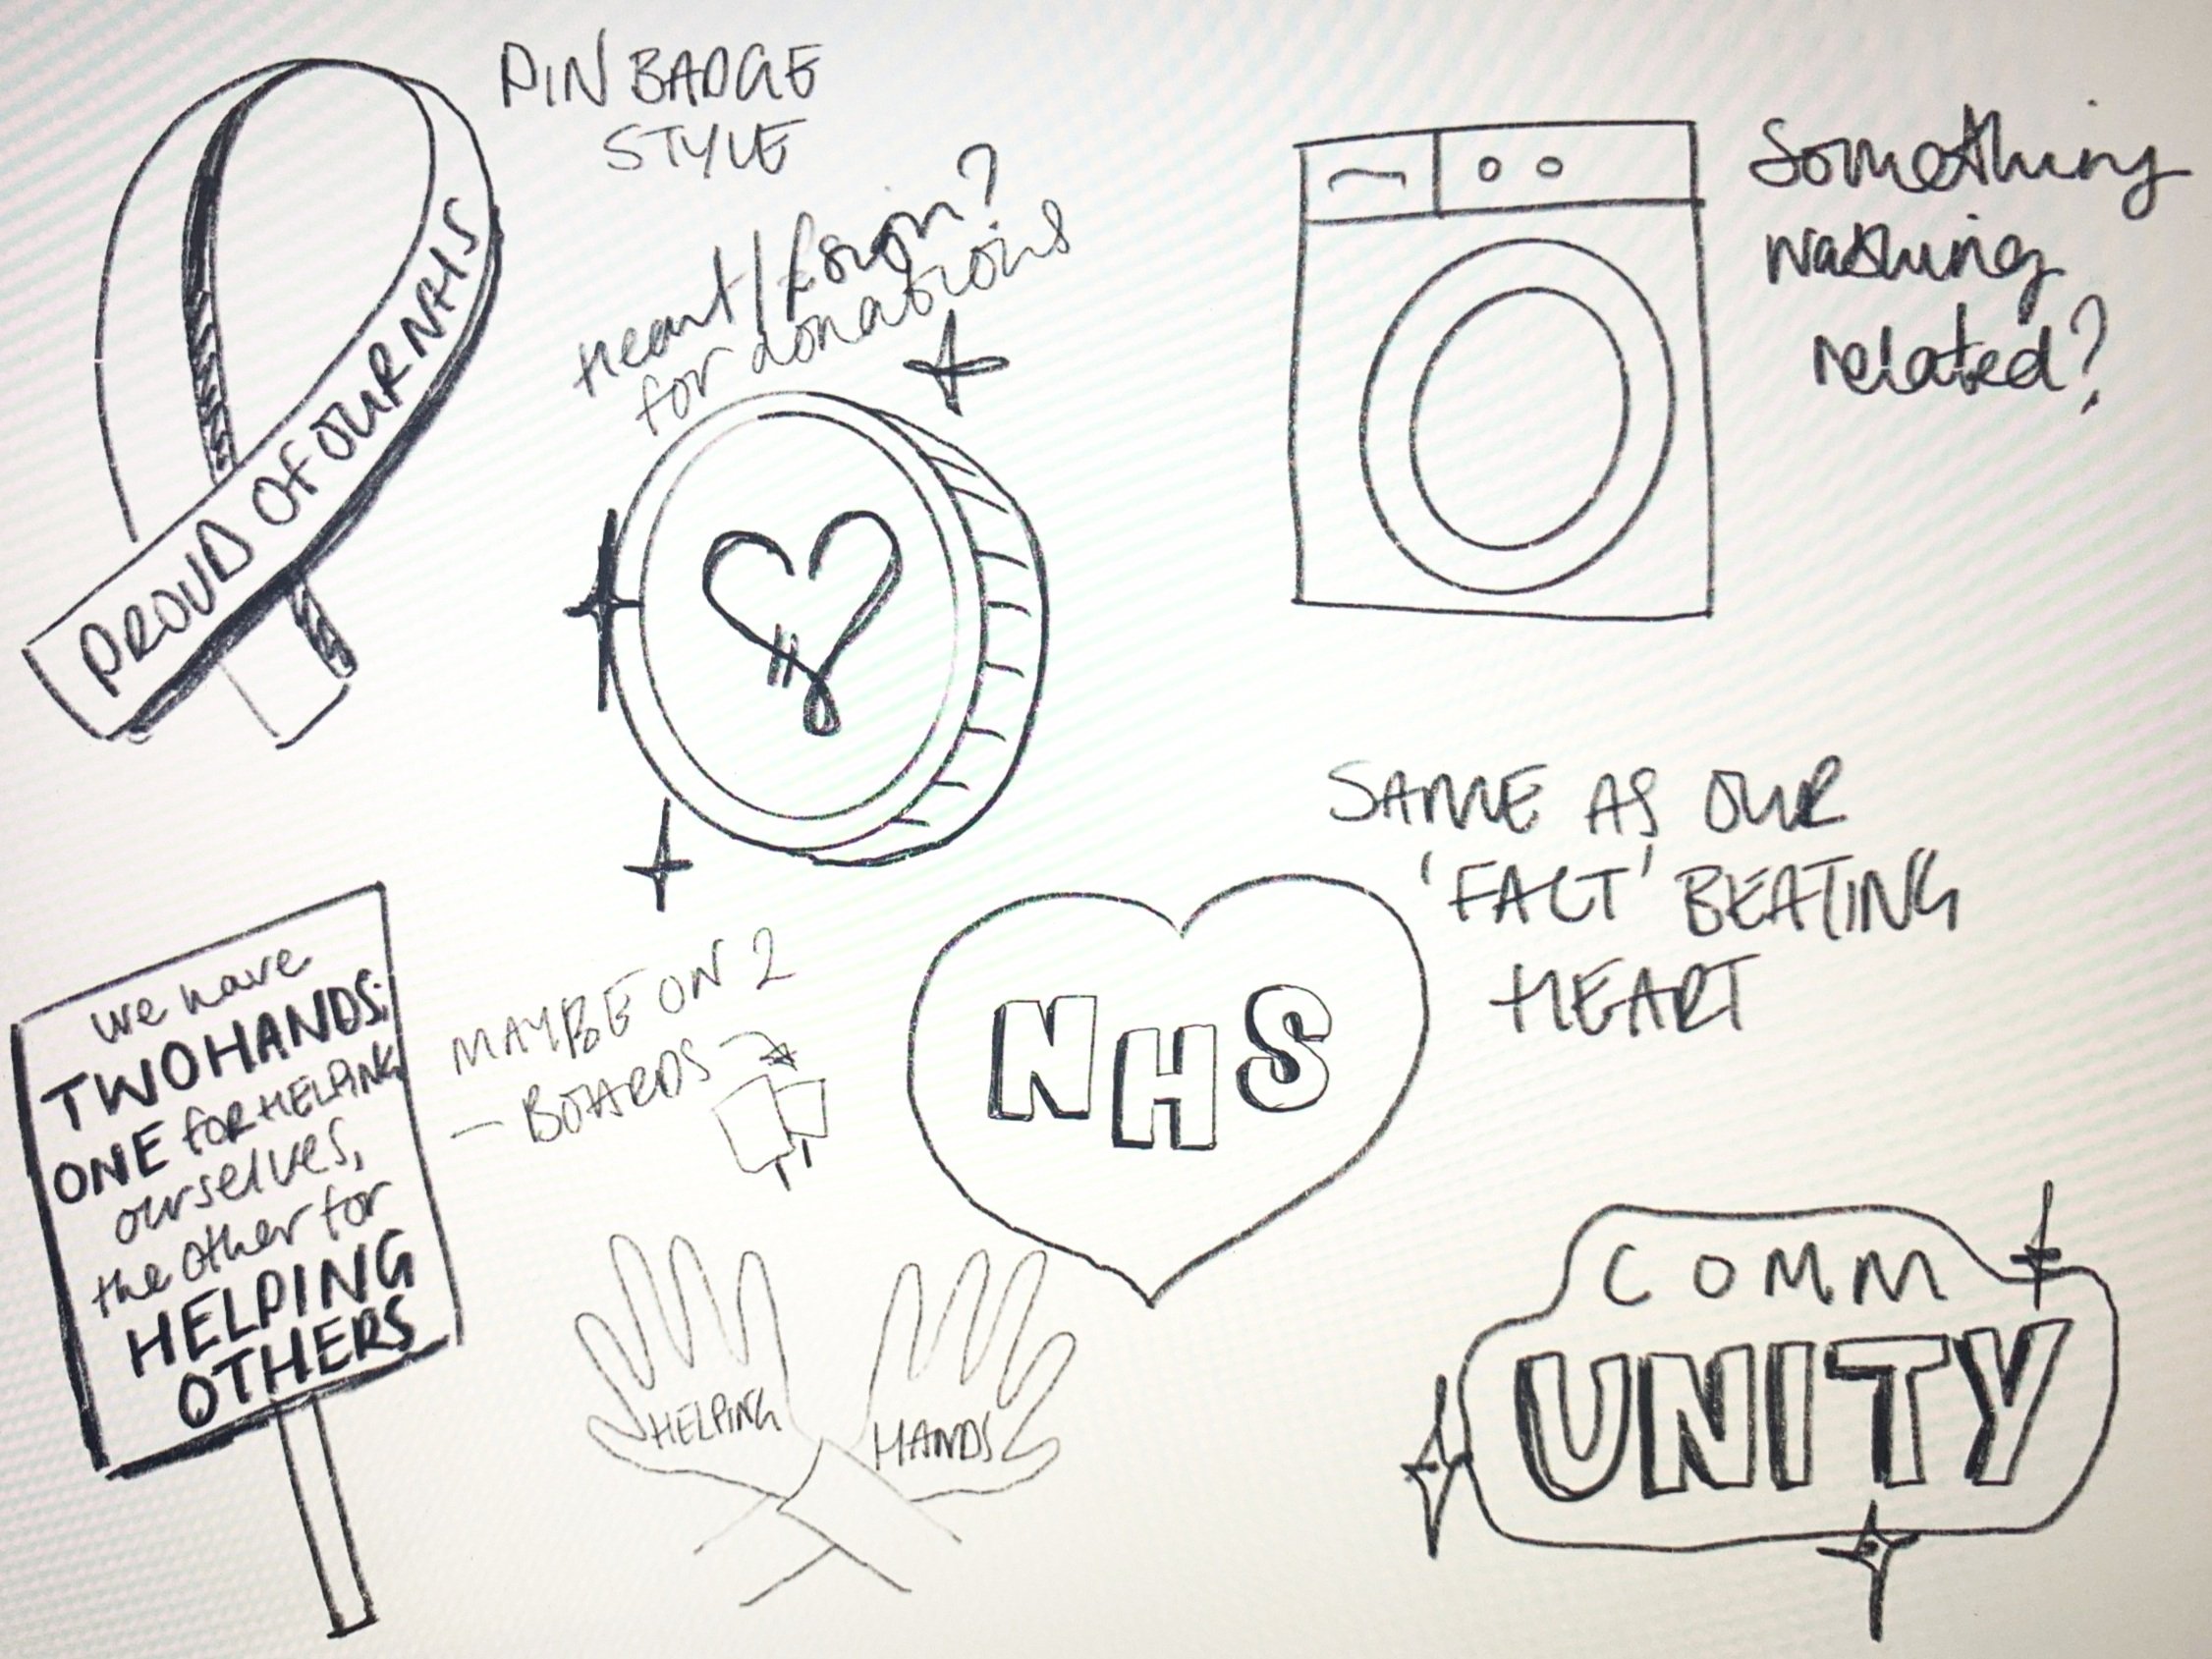 PIN BADGE
STYLE
PROUD OF OUR NHS
Heart/£coin?
for donations
Something
washing
related?
SAME AS OUR
'FACT' BEATING
HEART
NHS
we have
TWO HANDS:
ONE for HELPING
ourselves,
the other for
HELPING
OTHERS
MAYBE ON 2
- BOARDS
HELPING
HANDS
COMM
UNITY